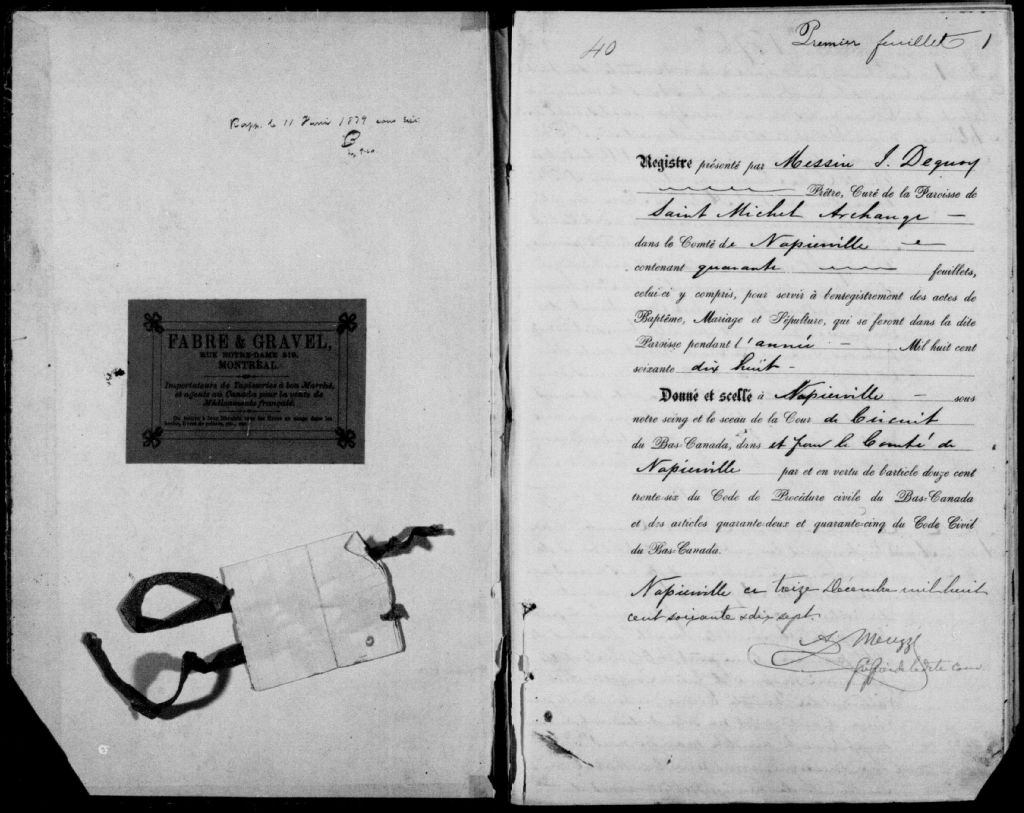 Rapp. le 11 1879
FABRE & GRAVEL,
RUE NOTRE-DAME 219,
MONTREAL.
Importateurs de Tapisseries à bon Marché,
et agents au Canada pour la vente de
Médicaments français.
40
Premier feuillet 1
Registre présenté par Messire J. Dequoy
Prêtre, Curé de la Paroisse de
Saint Michel Archange –
dans le Comté de Napierville
contenant quarante feuillets,
celui-ci y compris, pour servir à l'enregistrement des actes de
Baptême, Mariage et Sépulture, qui se feront dans la dite
Paroisse pendant l'année – Mil huit cent
soixante dix huit –
Donné et scellé à Napierville – sous
notre seing et le sceau de la Cour de Circuit
du Bas-Canada, dans et pour le Comté de
Napierville par et en vertu de l'article douze cent
trente-six du Code de Procédure civile du Bas-Canada
et des articles quarante-deux et quarante-cinq du Code Civil
du Bas-Canada.
Napierville ce treize Décembre mil huit
cent soixante & dix sept.
de la dite cour